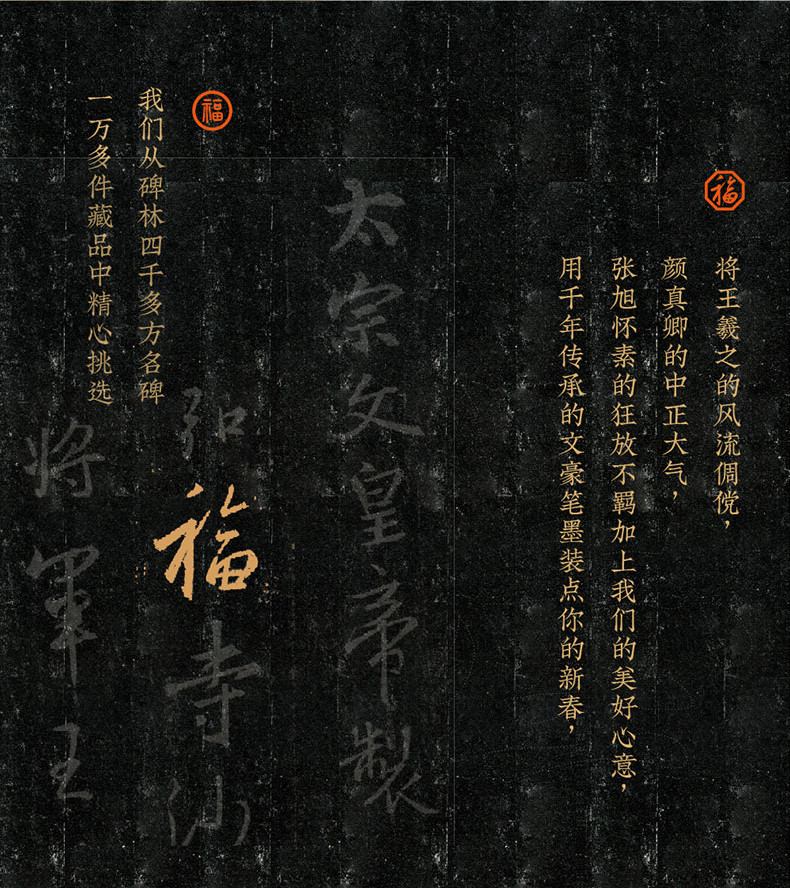 福
将王羲之的风流倜傥，
颜真卿的中正大气，
张旭怀素的狂放不羁加上我们的美好心意，
用千年传承的文豪笔墨装点你的新春，
太宗文皇帝製
福
弘福寺沙
我们从碑林四千多方名碑
一万多件藏品中精心挑选
将軍王